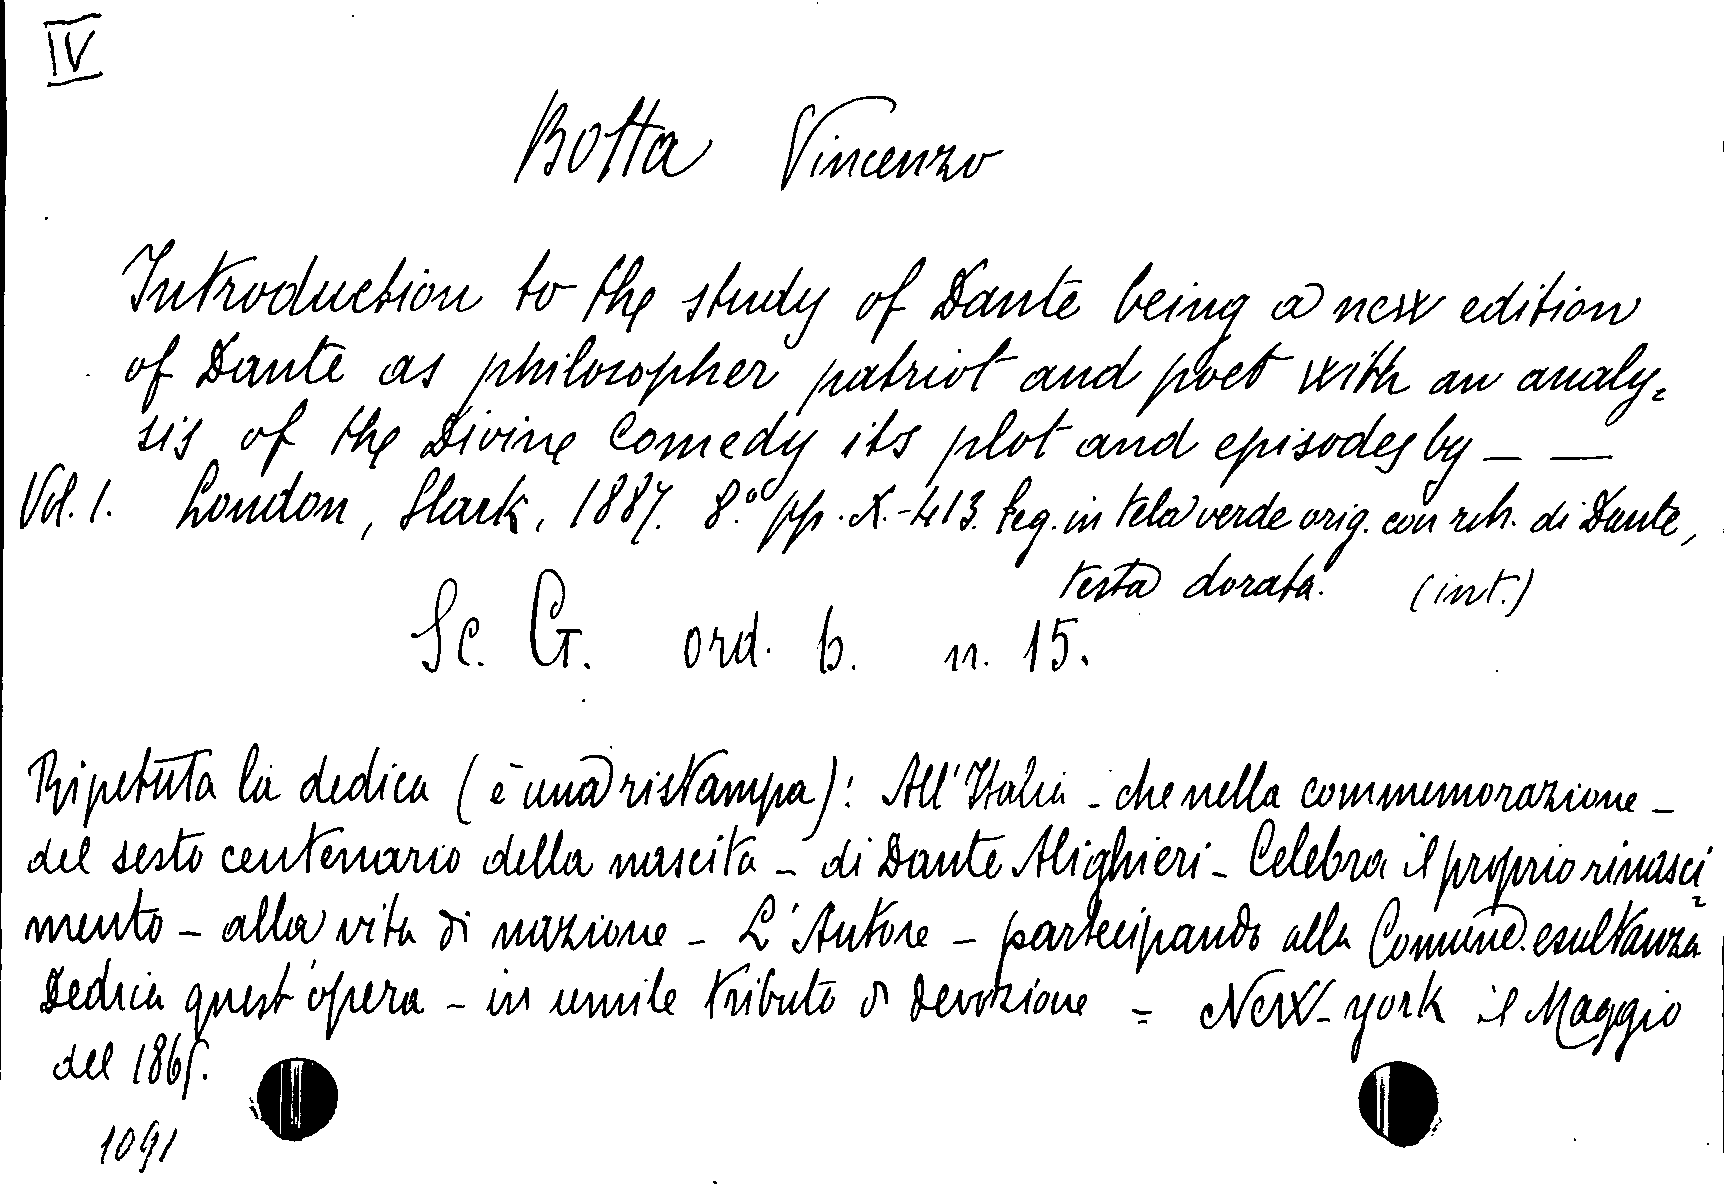 IV
Botta Vincenzo
Introduction to the study of Dante being a new edition
of Dante as philosopher patriot and poet with an analy=
sis of the Divine Comedy its plot and episodes by _ _
Vol. 1. London, Slark, 1887. 8.º pp. X.-413. Leg. in tela verde orig. con rih. di Dante,
testa dorata. (int.)
Sc. G. ord. 6. n. 15.
Ripetuta la dedica (è una ristampa): All'Italia - che nella commemorazione -
del sesto centenario della nascita - di Dante Alighieri - Celebra il proprio rinasci=
mento - alla vita di nazione - L'Autore - partecipando alla Comune esultanza
Dedica quest'opera - in umile tributo di devozione = New-york il Maggio
del 1865.
1091